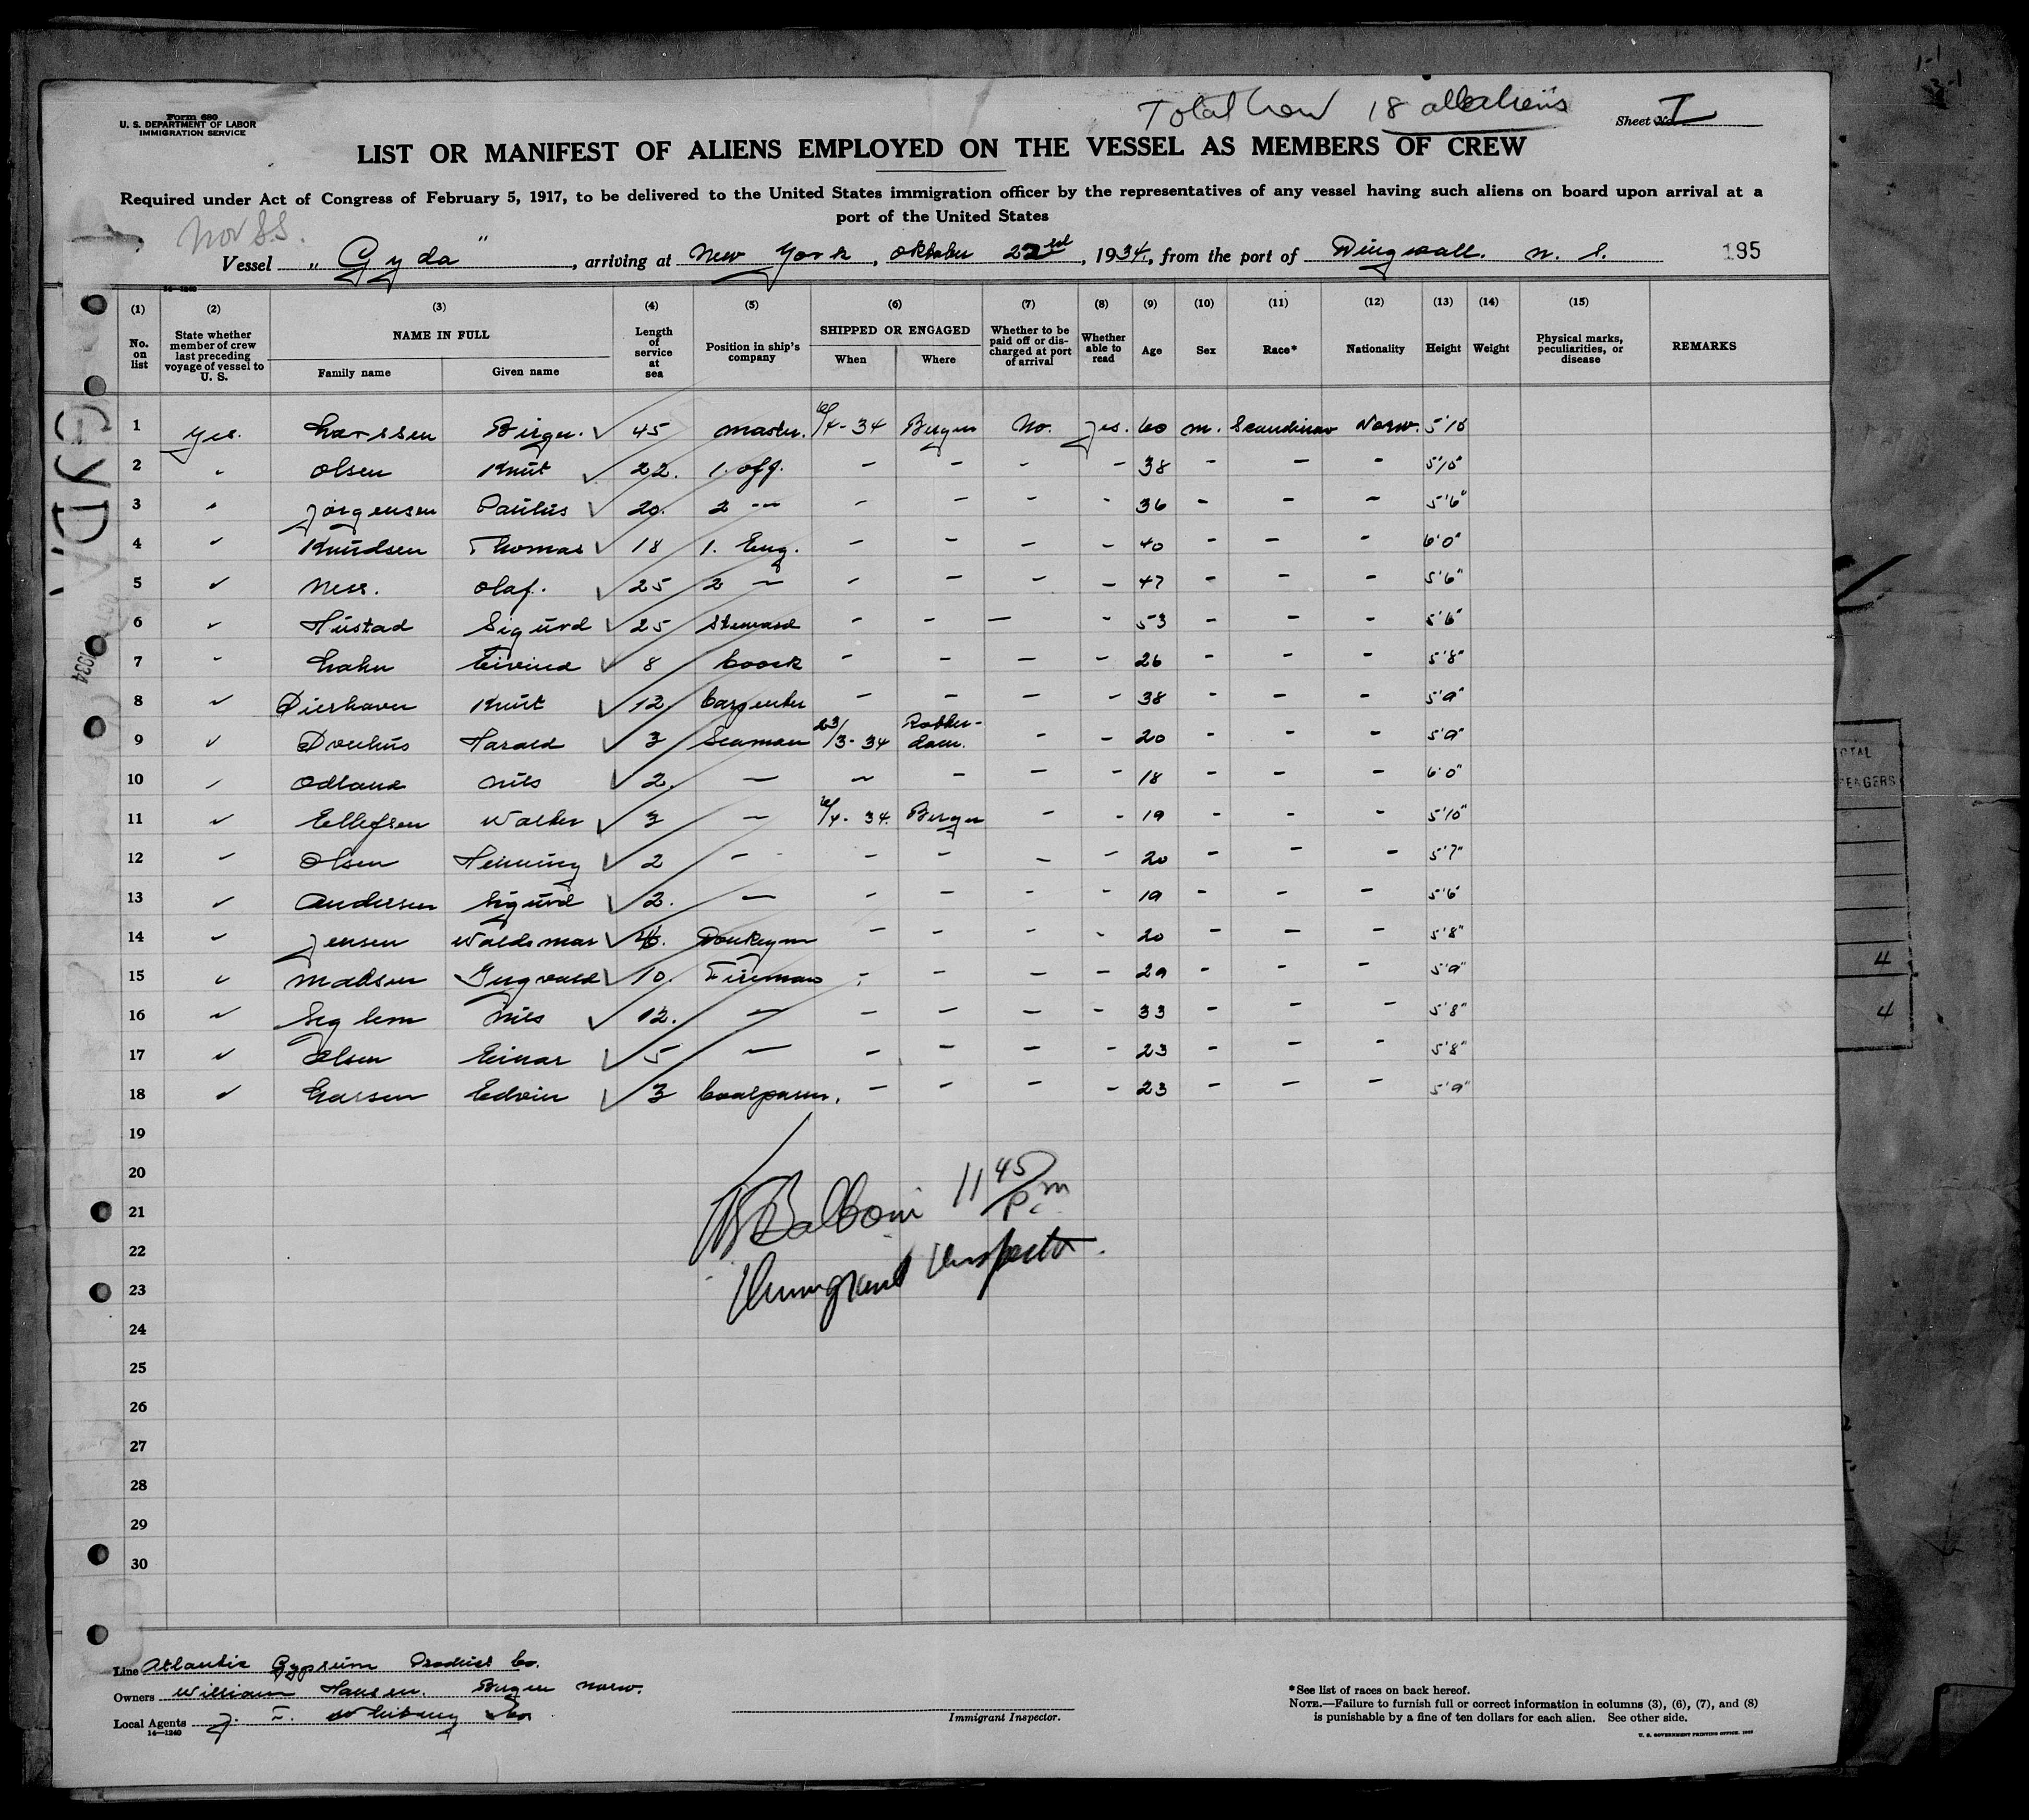 Form 680
U. S. DEPARTMENT OF LABOR
IMMIGRATION SERVICE
Total Crew 18 all aliens
Sheet No. I
LIST OR MANIFEST OF ALIENS EMPLOYED ON THE VESSEL AS MEMBERS OF CREW
Required under Act of Congress of February 5, 1917, to be delivered to the United States immigration officer by the representatives of any vessel having such aliens on board upon arrival at a
port of the United States
Nor S.S.
Vessel „ Gyda ", arriving at New York, Oktober 22nd, 1934, from the port of Dingwall. N. S.
195
(1) (2) (3) (4) (5) (6) (7) (8) (9) (10) (11) (12) (13) (14) (15)
No. on list
State whether member of crew last preceding voyage of vessel to U. S.
NAME IN FULL
Family name Given name
Length of service at sea
Position in ship's company
SHIPPED OR ENGAGED
When Where
Whether to be paid off or discharged at port of arrival
Whether able to read
Age Sex Race* Nationality Height Weight
Physical marks, peculiarities, or disease
REMARKS
1 Yes. Larssen Birger. 45 Master. 6/4-34 Bergen No. Yes. 60 m. Scandinav Norw. 5'10
2 Olsen Knut 22. 1. off. - - - - 38 - - - 5'10"
3 Jørgensen Paulus 20. 2 -"- - - - - 36 - - - 5'6"
4 Knudsen Thomas 18 1. Eng. - - - - 40 - - - 6'0"
5 Ness. Olaf. 25 2 - - - - - 47 - - - 5'6"
6 Hustad Sigurd 25 Steward - - - - 53 - - - 5'6"
7 Lahn Eivind 8 Coock - - - - 26 - - - 5'8"
8 Knut 12 Carpenter - - - - 38 - - - 5'9"
9 Harald 3 Seaman 23/3-34 Rotterdam. - - 20 - - - 5'9"
10 Odland Nils 2. - - - - - 18 - - - 6'0"
11 Ellefsen Walter 3 - 6/4-34. Bergen - - 19 - - - 5'10"
12 Olsen Henning 2 - - - - - 20 - - - 5'7"
13 Andersen Sigurd 2. - - - - - 19 - - - 5'6"
14 Jensen Waldemar Donkeym - - - - 20 - - - 5'8"
15 Madsen Ingvald 10. Fireman - - - - 29 - - - 5'9"
16 Seglem Nils 12. - - - - - 33 - - - 5'8"
17 Olsen Einar 5 - - - - - 23 - - - 5'8"
18 Larsen Edvin 3 Coalpasser. - - - - 23 - - - 5'9"
19
20
21
22
23
24
25
26
27
28
29
30
Balboni 11 45 P.m
Immigrant Inspector.
GYDA
1934
Line Atlantic Gypsum Product Co.
Owners William Hansen. Bergen Norw.
Local Agents J. T. Whitney Co
14—1240
Immigrant Inspector.
*See list of races on back hereof.
NOTE.—Failure to furnish full or correct information in columns (3), (6), (7), and (8)
is punishable by a fine of ten dollars for each alien. See other side.
U. S. GOVERNMENT PRINTING OFFICE
4
4